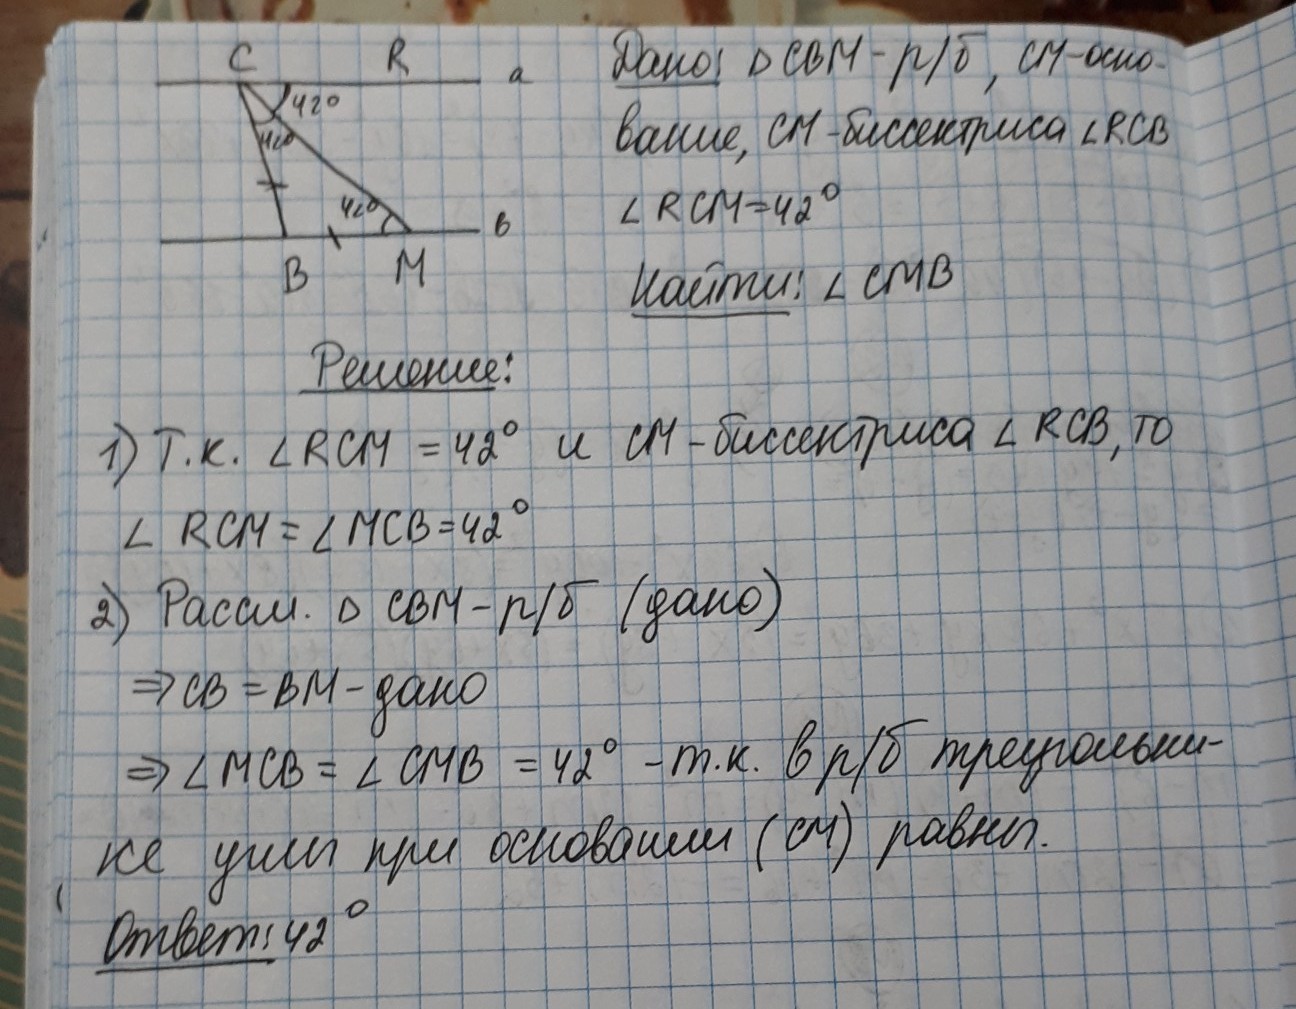 C R a
42°
42°
42° в
B M
Дано: ▵ CBM - р/б, CM-осно-
вание, CM-биссектриса ∠RCB
∠ RCM=42°
Найти: ∠ CMB
Решение:
1) Т.к. ∠RCM = 42° и CM-биссектриса ∠ RCB, то
∠ RCM = ∠MCB=42°
2) Рассм. ▵ CBM - р/б (дано)
⇒ CB = BM - дано
⇒ ∠MCB = ∠ CMB = 42° - т.к. в р/б треугольни-
ке углы при основании (CM) равны.
Ответ: 42°